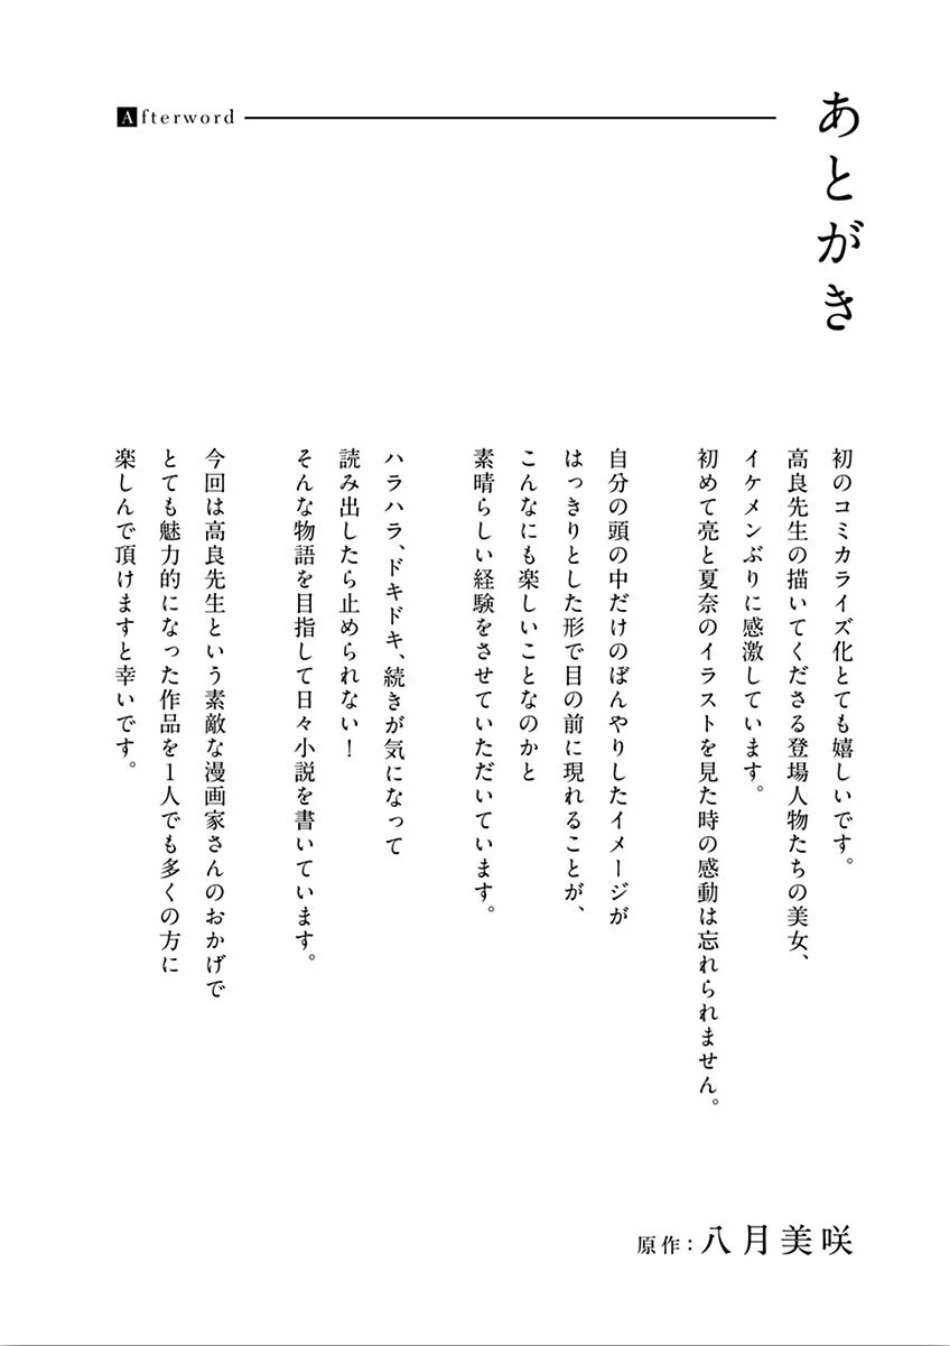 あとがき
Afterword
初のコミカライズ化とても嬉しいです。
高良先生の描いてくださる登場人物たちの美女、
イケメンぶりに感激しています。
初めて亮と夏奈のイラストを見た時の感動は忘れられません。
自分の頭の中だけのぼんやりしたイメージが
はっきりとした形で目の前に現れることが、
こんなにも楽しいことなのかと
素晴らしい経験をさせていただいています。
ハラハラ、ドキドキ、続きが気になって
読み出したら止められない！
そんな物語を目指して日々小説を書いています。
今回は高良先生という素敵な漫画家さんのおかげで
とても魅力的になった作品を1人でも多くの方に
楽しんで頂けますと幸いです。
原作：八月美咲